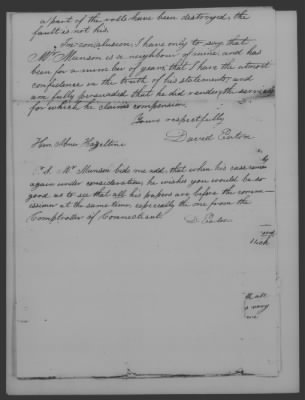 a part of the rolls have been destroyed, the
fault is not his.
In conclusion, I have only to say that
Mr Munson is a neighbour of mine and has
been for a number of years that I have the utmost
confidence in the truth of his statements, and
am fully persuaded that he did render the services
for which he claims compension.
Yours respectfully
David Eaton
Hon. Abner Hazeltine
P.S. Mr Munson bids me add, that when his case comes
again under consideration, he wishes you would be so
good as to see that all his papers are before the comm-
issioner at the same time, especially the one from the
Comptroller of Connecticut.
D. Eaton
that
a navy